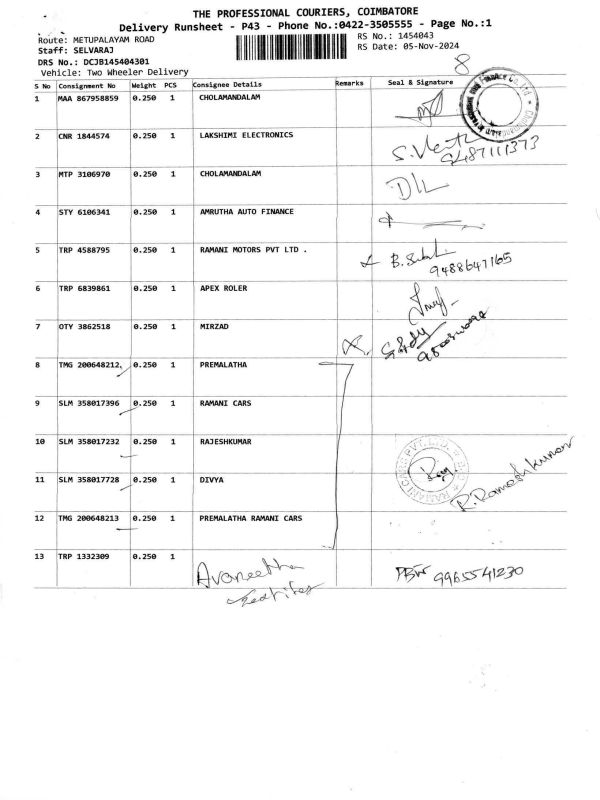 THE PROFESSIONAL COURIERS, COIMBATORE
Delivery Runsheet - P43 - Phone No.:0422-3505555 - Page No.:1
Route: METUPALAYAM ROAD
RS No.: 1454043
Staff: SELVARAJ
RS Date: 05-Nov-2024
DRS No.: DCJB145404301
Vehicle: Two Wheeler Delivery
8
S No Consignment No Weight PCS Consignee Details Remarks Seal & Signature
1 MAA 867958859 0.250 1 CHOLAMANDALAM
2 CNR 1844574 0.250 1 LAKSHIMI ELECTRONICS
9487111373
3 MTP 3106970 0.250 1 CHOLAMANDALAM
4 STY 6106341 0.250 1 AMRUTHA AUTO FINANCE
5 TRP 4588795 0.250 1 RAMANI MOTORS PVT LTD .
9488647165
6 TRP 6839861 0.250 1 APEX ROLER
7 OTY 3862518 0.250 1 MIRZAD
8 TMG 200648212 0.250 1 PREMALATHA
9 SLM 358017396 0.250 1 RAMANI CARS
10 SLM 358017232 0.250 1 RAJESHKUMAR
RAMANI CARS PVT. LTD.
R. Rameshkumar
11 SLM 358017728 0.250 1 DIVYA
12 TMG 200648213 0.250 1 PREMALATHA RAMANI CARS
13 TRP 1332309 0.250 1 Avaneetha
9965541230